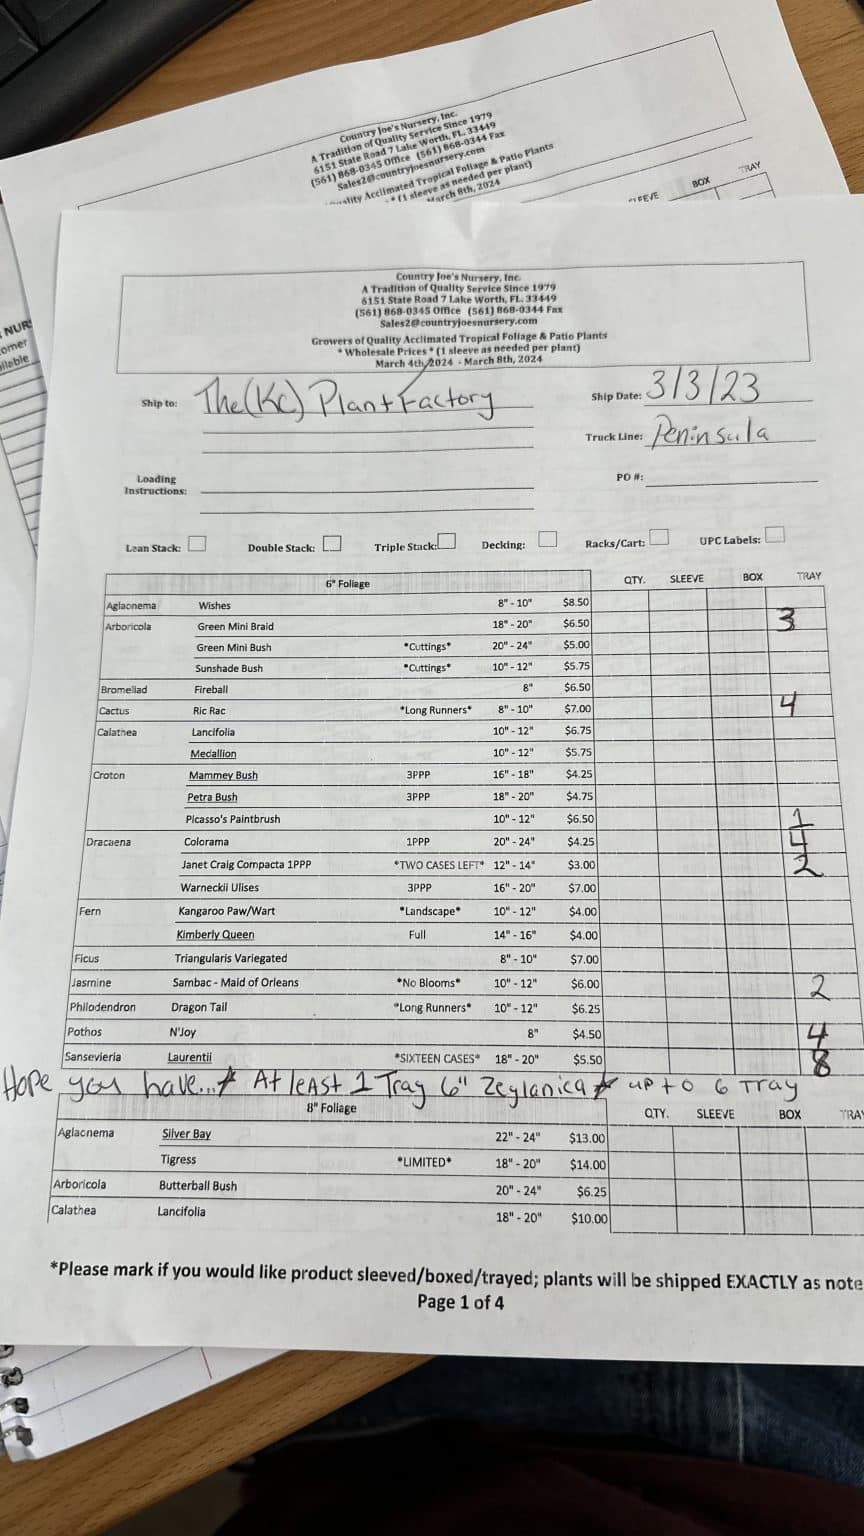 Country Joe's Nursery, Inc.
A Tradition of Quality Service Since 1979
6151 State Road 7 Lake Worth, FL. 33449
(561) 868-0345 Office (561) 868-0344 Fax
Sales2@countryjoesnursery.com
Quality Acclimated Tropical Foliage & Patio Plants
* (1 sleeve as needed per plant)
March 8th, 2024
SLEEVE BOX TRAY
NUR
omer
ilable
Country Joe's Nursery, Inc.
A Tradition of Quality Service Since 1979
6151 State Road 7 Lake Worth, FL. 33449
(561) 868-0345 Office (561) 868-0344 Fax
Sales2@countryjoesnursery.com
Growers of Quality Acclimated Tropical Foliage & Patio Plants
* Wholesale Prices * (1 sleeve as needed per plant)
March 4th, 2024 - March 8th, 2024
Ship to: The (KC) Plant Factory Ship Date: 3/3/23
Truck Line: Peninsula
Loading Instructions: PO #:
Lean Stack: Double Stack: Triple Stack: Decking: Racks/Cart: UPC Labels:
6" Foliage QTY. SLEEVE BOX TRAY
Aglaonema Wishes 8" - 10" $8.50
Arboricola Green Mini Braid 18" - 20" $6.50 3
Green Mini Bush *Cuttings* 20" - 24" $5.00
Sunshade Bush *Cuttings* 10" - 12" $5.75
Bromeliad Fireball 8" $6.50
Cactus Ric Rac *Long Runners* 8" - 10" $7.00 4
Calathea Lancifolia 10" - 12" $6.75
Medallion 10" - 12" $5.75
Croton Mammey Bush 3PPP 16" - 18" $4.25
Petra Bush 3PPP 18" - 20" $4.75
Picasso's Paintbrush 10" - 12" $6.50 1
Dracaena Colorama 1PPP 20" - 24" $4.25 4
Janet Craig Compacta 1PPP *TWO CASES LEFT* 12" - 14" $3.00 2
Warneckii Ulises 3PPP 16" - 20" $7.00
Fern Kangaroo Paw/Wart *Landscape* 10" - 12" $4.00
Kimberly Queen Full 14" - 16" $4.00
Ficus Triangularis Variegated 8" - 10" $7.00
Jasmine Sambac - Maid of Orleans *No Blooms* 10" - 12" $6.00 2
Philodendron Dragon Tail *Long Runners* 10" - 12" $6.25
Pothos N'Joy 8" $4.50 4
Sansevieria Laurentii *SIXTEEN CASES* 18" - 20" $5.50 8
Hope you have...* At least 1 Tray 6" Zeylanica * up to 6 Tray
8" Foliage QTY. SLEEVE BOX TRAY
Aglaonema Silver Bay 22" - 24" $13.00
Tigress *LIMITED* 18" - 20" $14.00
Arboricola Butterball Bush 20" - 24" $6.25
Calathea Lancifolia 18" - 20" $10.00
*Please mark if you would like product sleeved/boxed/trayed; plants will be shipped EXACTLY as note
Page 1 of 4